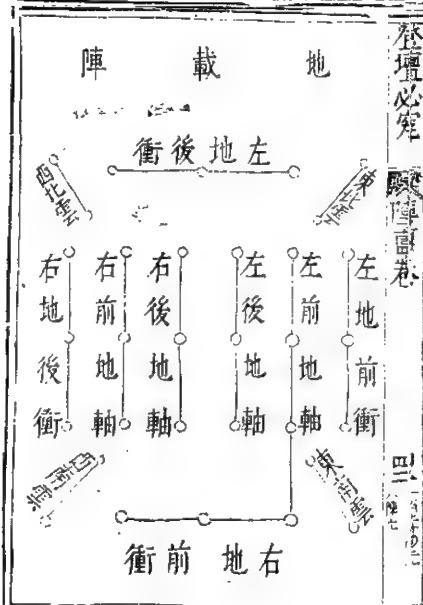 登壇必究
地載陣
左地後衝
東北雲
西北雲
左地前衝
左前地軸
左後地軸
右後地軸
右前地軸
右地後衝
東南雲
右地前衝